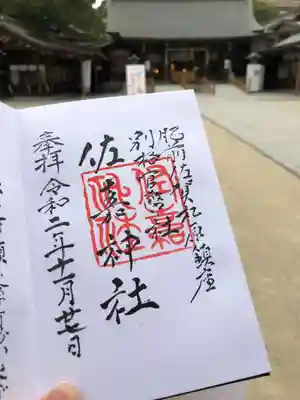 肥前佐賀松原鎮座
別格官幣社
佐嘉神社
奉拝 令和二年十一月廿七日